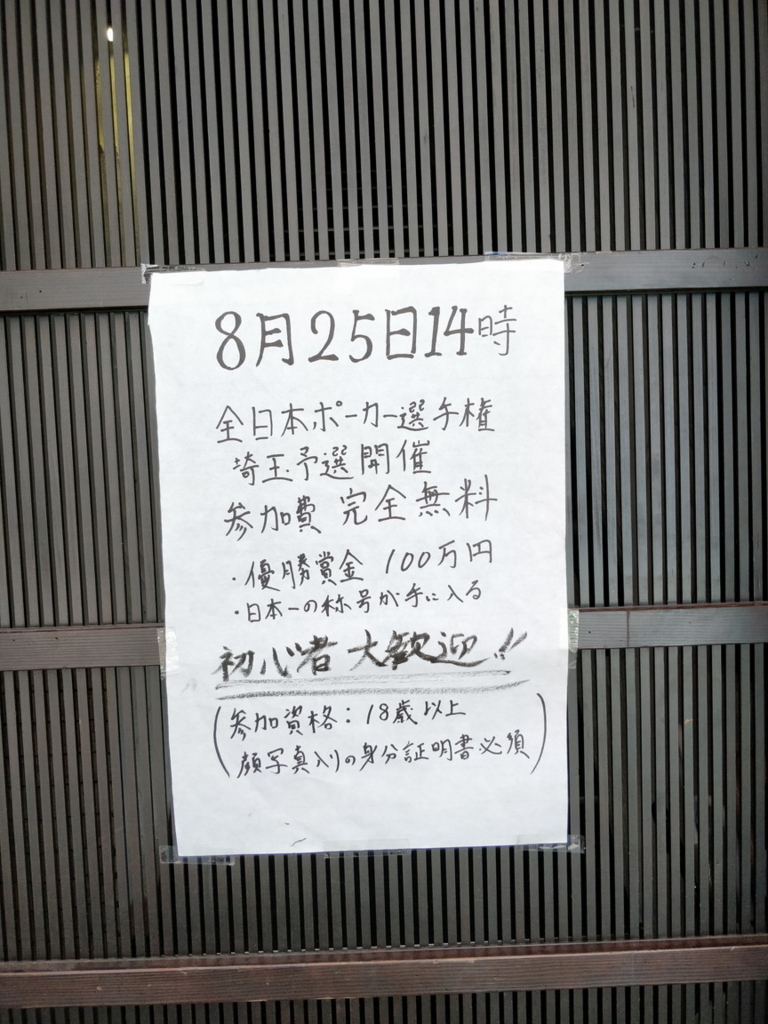 8月25日14時
全日本ポーカー選手権
埼玉予選開催
参加費 完全無料
・優勝賞金 100万円
・日本一の称号が手に入る
初心者 大歓迎!!
(参加資格:18歳以上
顔写真入りの身分証明書必須)